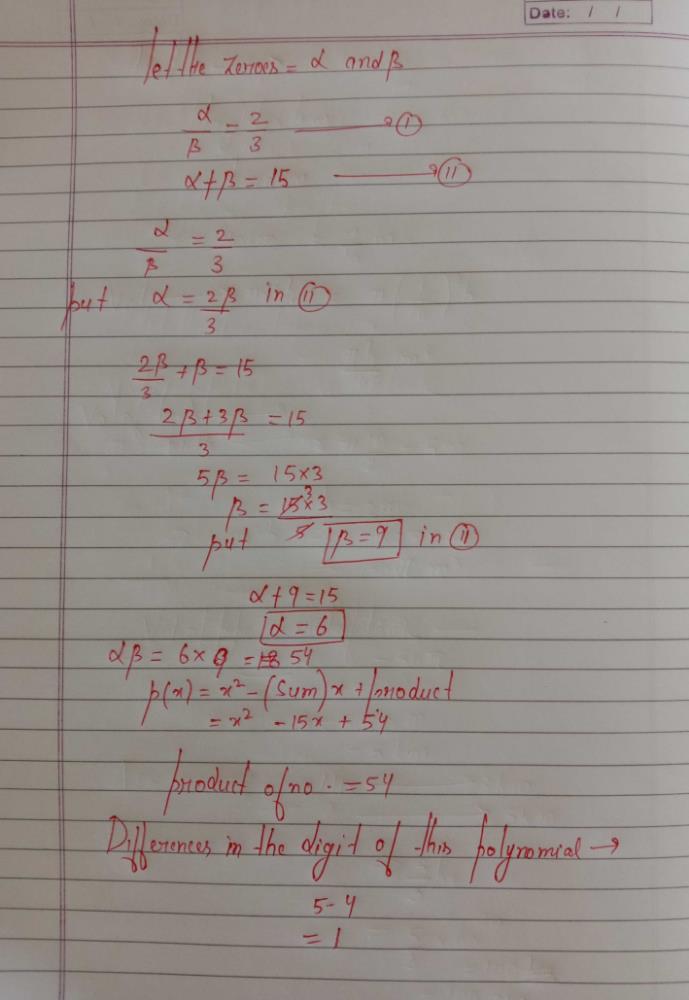 Date: / /
let the zeroes = α and β
α/β = 2/3 → (i)
α + β = 15 → (ii)
α/β = 2/3
put α = 2β/3 in (ii)
2β/3 + β = 15
2β + 3β/3 = 15
5β = 15 × 3
β = 15 × 3/5 3
put β = 9 in (ii)
α + 9 = 15
α = 6
αβ = 6 × 9 = 54
p(x) = x² - (Sum)x + product
= x² - 15x + 54
product of no. = 54
Differences in the digit of this polynomial →
5 - 4
= 1